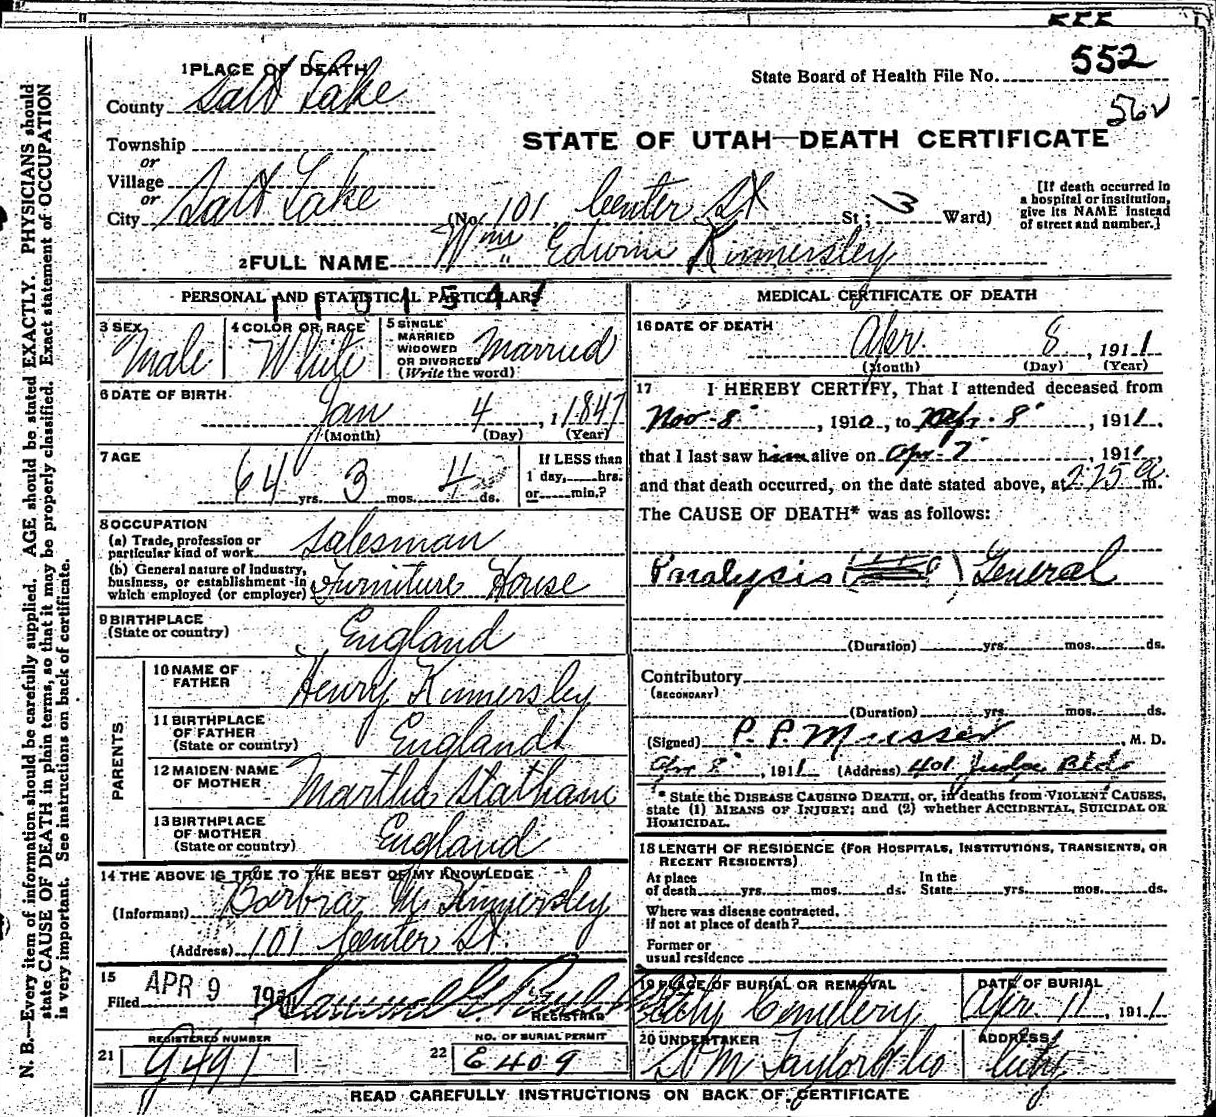 552
State Board of Health File No.
562
1 PLACE OF DEATH
County Salt Lake
STATE OF UTAH—DEATH CERTIFICATE
Township
or
Village
or
City Salt Lake (No. 101 Center St St; 3 Ward)
[If death occurred in
a hospital or institution,
give its NAME instead
of street and number.]
2 FULL NAME Wm Edwin Kinnersley
PERSONAL AND STATISTICAL PARTICULARS
3 SEX
Male
4 COLOR OR RACE
White
5 SINGLE
MARRIED
WIDOWED
OR DIVORCED
(Write the word)
Married
6 DATE OF BIRTH
Jan 4, 1847
(Month) (Day) (Year)
7 AGE
64 yrs. 3 mos. 4 ds.
If LESS than
1 day, hrs.
or min.?
8 OCCUPATION
(a) Trade, profession or
particular kind of work Salesman
(b) General nature of industry,
business, or establishment in
which employed (or employer) Furniture House
9 BIRTHPLACE
(State or country) England
PARENTS
10 NAME OF
FATHER Henry Kinnersley
11 BIRTHPLACE
OF FATHER
(State or country) England
12 MAIDEN NAME
OF MOTHER Martha Statham
13 BIRTHPLACE
OF MOTHER
(State or country) England
14 THE ABOVE IS TRUE TO THE BEST OF MY KNOWLEDGE
(Informant) Barbra M. Kinnersley
(Address) 101 Center St.
15
Filed APR 9 191
REGISTRAR
REGISTERED NUMBER
21 9497
NO. OF BURIAL PERMIT
22 E409
MEDICAL CERTIFICATE OF DEATH
16 DATE OF DEATH
Apr. 8, 1911
(Month) (Day) (Year)
17 I HEREBY CERTIFY, That I attended deceased from
Nov-8, 1910, to Apr-8, 1911,
that I last saw him alive on Apr-7, 1911,
and that death occurred, on the date stated above, at 2:25 a m.
The CAUSE OF DEATH* was as follows:
Paralysis General
(Duration) yrs. mos. ds.
Contributory
(SECONDARY)
(Duration) yrs. mos. ds.
(Signed) P. P. Musser, M. D.
Apr 8, 1911 (Address) 401 Judge Bldg
* State the DISEASE CAUSING DEATH, or, in deaths from VIOLENT CAUSES,
state (1) MEANS OF INJURY; and (2) whether ACCIDENTAL, SUICIDAL OR
HOMICIDAL.
18 LENGTH OF RESIDENCE (FOR HOSPITALS, INSTITUTIONS, TRANSIENTS, OR
RECENT RESIDENTS).
At place
of death yrs. mos. ds. In the
State yrs. mos. ds.
Where was disease contracted,
if not at place of death?
Former or
usual residence
19 PLACE OF BURIAL OR REMOVAL
City Cemetery
DATE OF BURIAL
Apr. 11, 1911
20 UNDERTAKER
S M Taylor & Co
ADDRESS
City
READ CAREFULLY INSTRUCTIONS ON BACK OF CERTIFICATE
N. B.—Every item of information should be carefully supplied. AGE should be stated EXACTLY. PHYSICIANS should
state CAUSE OF DEATH in plain terms, so that it may be properly classified. Exact statement of OCCUPATION
is very important. See instructions on back of certificate.